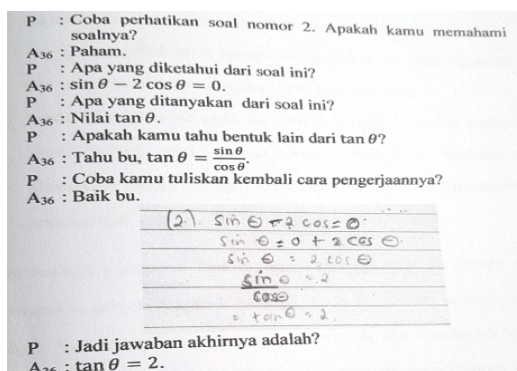 P : Coba perhatikan soal nomor 2. Apakah kamu memahami
soalnya?
A36 : Paham.
P : Apa yang diketahui dari soal ini?
A36 : sin θ − 2 cos θ = 0.
P : Apa yang ditanyakan dari soal ini?
A36 : Nilai tan θ.
P : Apakah kamu tahu bentuk lain dari tan θ?
A36 : Tahu bu, tan θ = sin θ / cos θ.
P : Coba kamu tuliskan kembali cara pengerjaannya?
A36 : Baik bu.
(2). sin θ - 2 cos = 0
sin θ = 0 + 2 cos θ
sin θ = 2 cos θ
sin θ / cos θ = 2
= tan θ = 2
P : Jadi jawaban akhirnya adalah?
A36 : tan θ = 2.